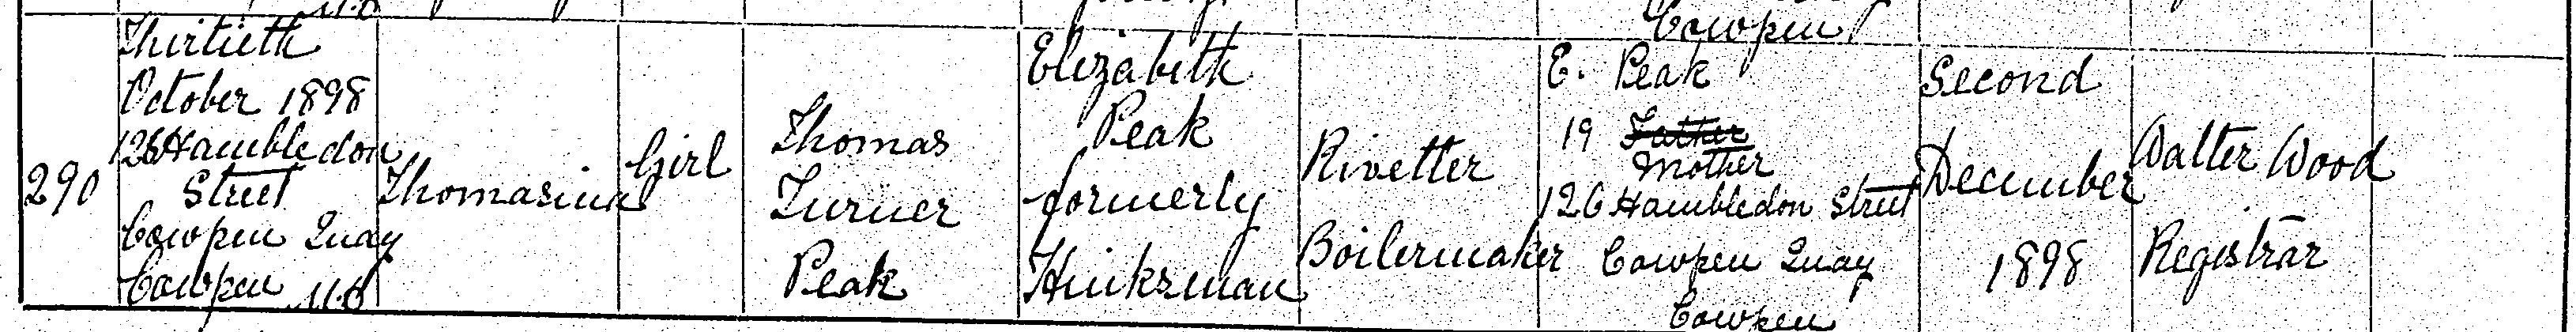 290
Thirtieth
October 1898
126 Hambledon
Street
Cowpen Quay
Cowpen U.D
Thomasina
Girl
Thomas
Turner
Peak
Elizabeth
Peak
formerly
Hinksman
Rivetter
Boilermaker
Cowpen
E. Peak
19 Father
Mother
126 Hambledon Street
Cowpen Quay
Cowpen
Second
December
1898
Walter Wood
Registrar